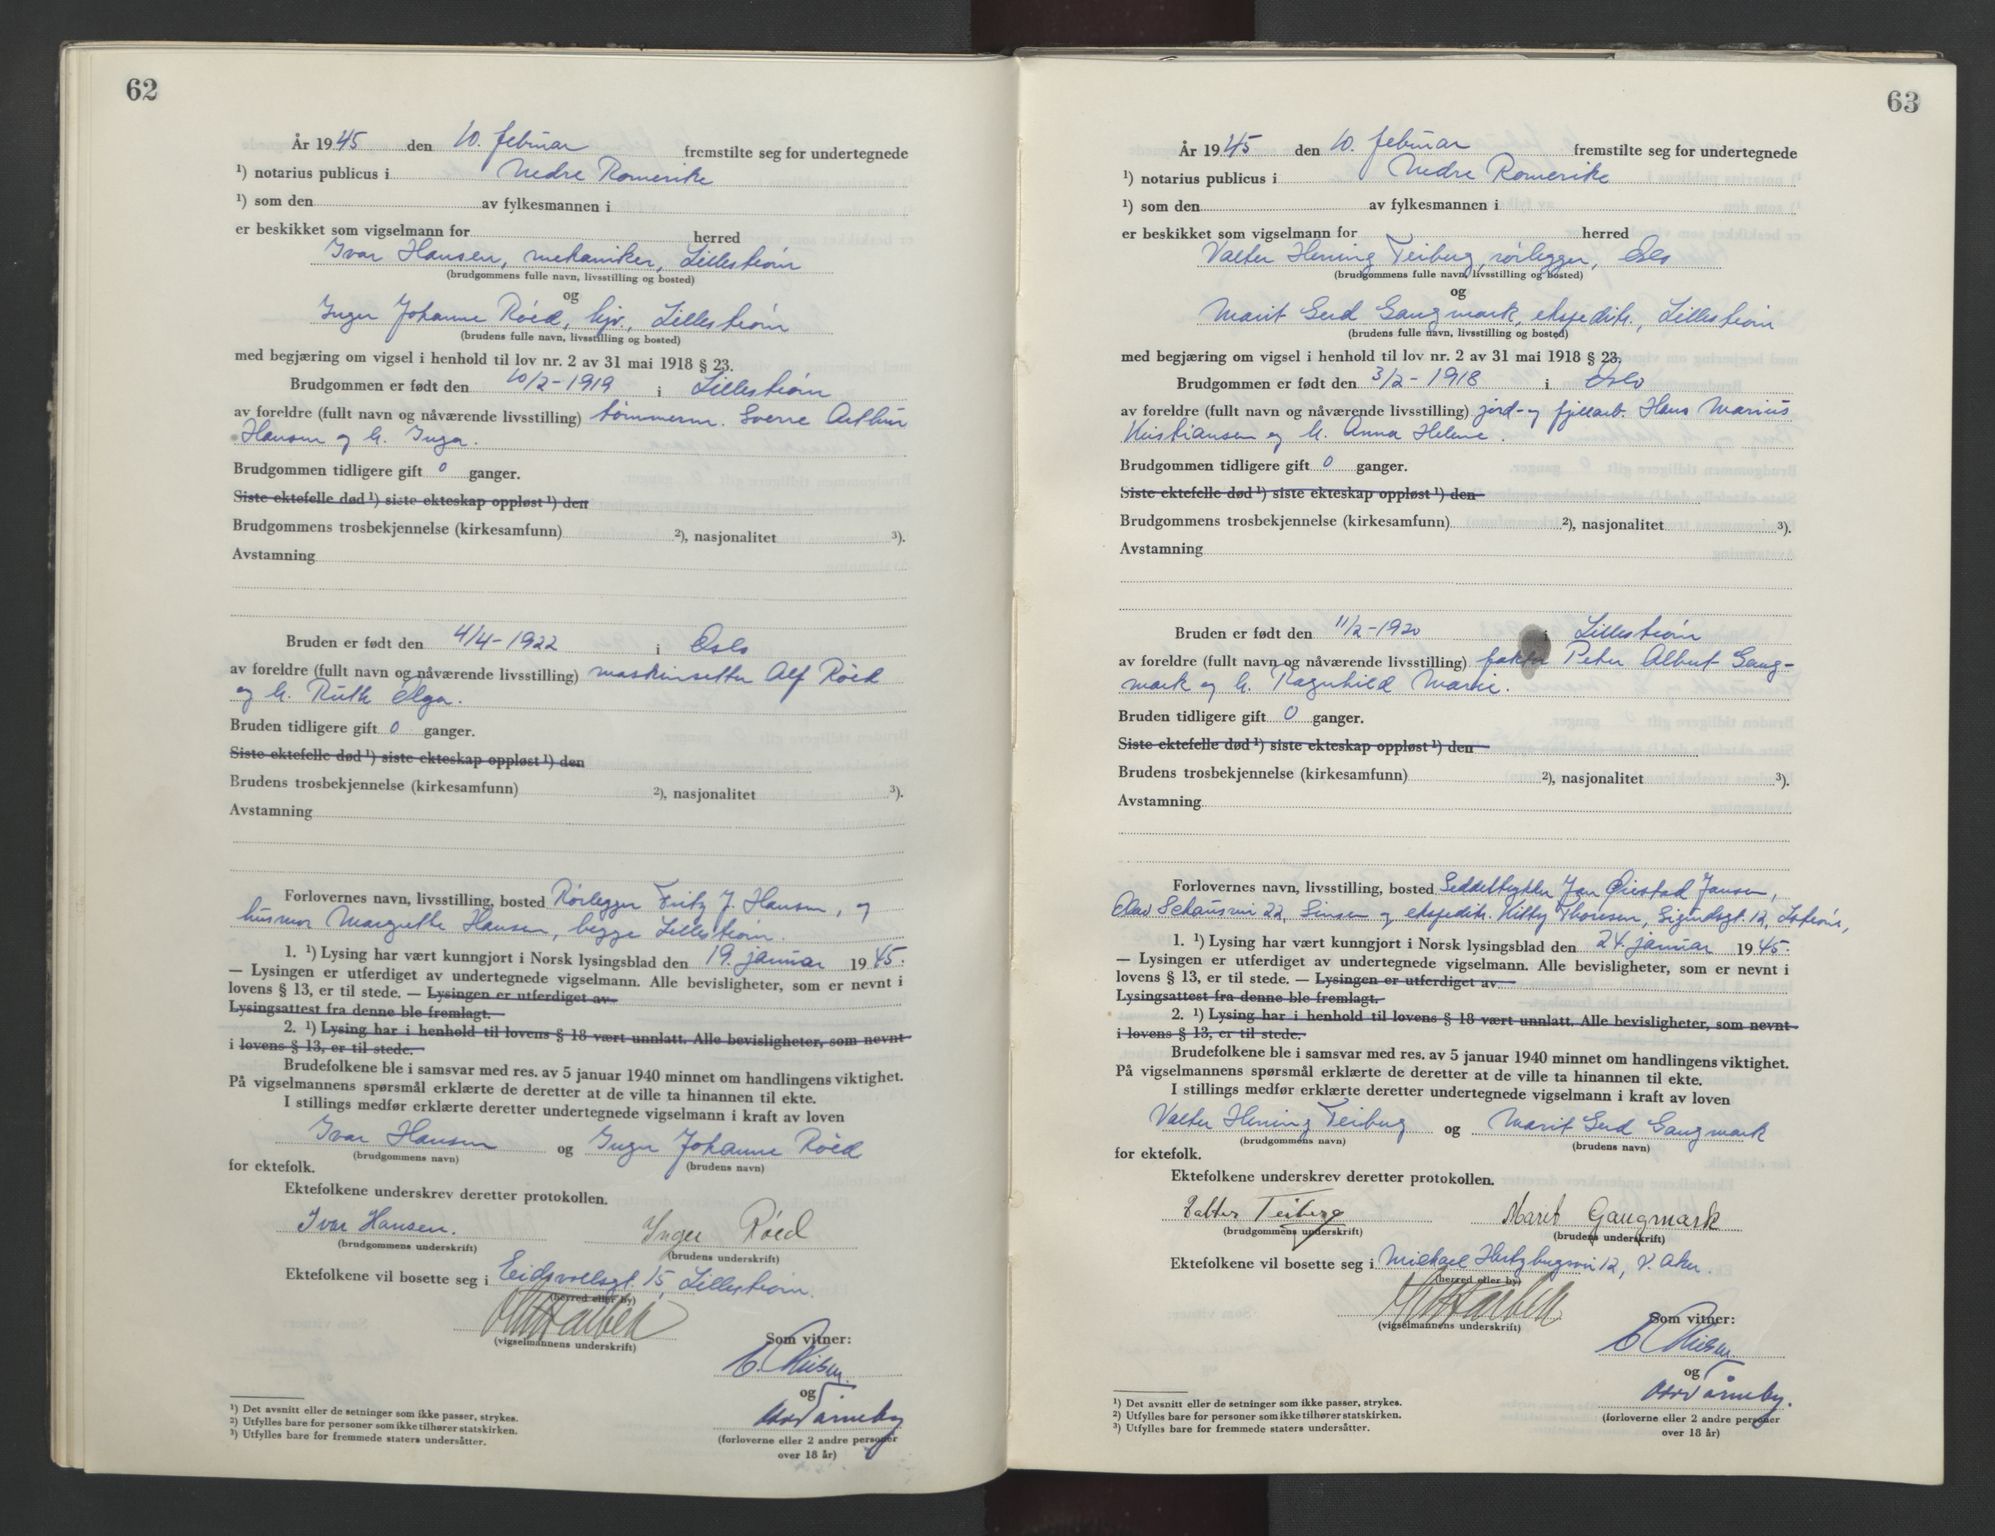 62
År 1945 den 10. februar fremstilte seg for undertegnede
¹) notarius publicus i Nedre Romerike
¹) som den av fylkesmannen i
er beskikket som vigselmann for herred
Ivar Hansen, mekaniker, Lillestrøm
(brudgommens fulle navn, livsstilling og bosted)
og
Inger Johanne Röed, hjv., Lillestrøm
(brudens fulle navn, livsstilling og bosted)
med begjæring om vigsel i henhold til lov nr. 2 av 31 mai 1918 § 23.
Brudgommen er født den 10/2-1919 i Lillestrøm
av foreldre (fullt navn og nåværende livsstilling) tømmerm. Sverre Arthur
Hansen og h. Inga.
Brudgommen tidligere gift 0 ganger.
Siste ektefelle død ¹) siste ekteskap oppløst ¹) den
Brudgommens trosbekjennelse (kirkesamfunn) ²), nasjonalitet ³).
Avstamning
Bruden er født den 4/4-1922 i Oslo
av foreldre (fullt navn og nåværende livsstilling) maskinsetter Alf Röed
og h. Ruth Elga.
Bruden tidligere gift 0 ganger.
Siste ektefelle død ¹) siste ekteskap oppløst ¹) den
Brudens trosbekjennelse (kirkesamfunn) ²), nasjonalitet ³).
Avstamning
Forlovernes navn, livsstilling, bosted Rørlegger Fritz J. Hansen, og
husmor Margrethe Hansen, begge Lillestrøm.
1. ¹) Lysing har vært kunngjort i Norsk lysingsblad den 19. januar 1945.
— Lysingen er utferdiget av undertegnede vigselmann. Alle bevisligheter, som er nevnt i
lovens § 13, er til stede. — Lysingen er utferdiget av
Lysingsattest fra denne ble fremlagt.
2. ¹) Lysing har i henhold til lovens § 18 vært unnlatt. Alle bevisligheter, som nevnt
i lovens § 13, er til stede.
Brudefolkene ble i samsvar med res. av 5 januar 1940 minnet om handlingens viktighet.
På vigselmannens spørsmål erklærte de deretter at de ville ta hinannen til ekte.
I stillings medfør erklærte deretter undertegnede vigselmann i kraft av loven
Ivar Hansen og Inger Johanne Röed
(brudgommens navn) (brudens navn)
for ektefolk.
Ektefolkene underskrev deretter protokollen.
Ivar Hansen. Inger Röed
(brudgommens underskrift) (brudens underskrift)
Ektefolkene vil bosette seg i Eidsvollsgt. 15, Lillestrøm.
(herred eller by)
(vigselmannens underskrift)
Som vitner:
og
(forloverne eller 2 andre personer
over 18 år)
¹) Det avsnitt eller de setninger som ikke passer, strykes.
²) Utfylles bare for personer som ikke tilhører statskirken.
³) Utfylles bare for fremmede staters undersåtter.
63
År 1945 den 10. februar fremstilte seg for undertegnede
¹) notarius publicus i Nedre Romerike
¹) som den av fylkesmannen i
er beskikket som vigselmann for herred
Valter Hening Teiberg, rørlegger, Oslo
(brudgommens fulle navn, livsstilling og bosted)
og
Marit Gerd Gaugmark, ekspeditr., Lillestrøm
(brudens fulle navn, livsstilling og bosted)
med begjæring om vigsel i henhold til lov nr. 2 av 31 mai 1918 § 23.
Brudgommen er født den 3/2-1918 i Oslo
av foreldre (fullt navn og nåværende livsstilling) jord- og fjellarb. Hans Marius
Kristiansen og h. Anna Helene.
Brudgommen tidligere gift 0 ganger.
Siste ektefelle død ¹) siste ekteskap oppløst ¹) den
Brudgommens trosbekjennelse (kirkesamfunn) ²), nasjonalitet ³).
Avstamning
Bruden er født den 11/2-1920 i Lillestrøm
av foreldre (fullt navn og nåværende livsstilling) faktor Peter Albert Gaug-
mark og h. Ragnhild Marie.
Bruden tidligere gift 0 ganger.
Siste ektefelle død ¹) siste ekteskap oppløst ¹) den
Brudens trosbekjennelse (kirkesamfunn) ²), nasjonalitet ³).
Avstamning
Forlovernes navn, livsstilling, bosted Seddeltrykker Jan Øiestad Jansen,
Olav Schausvei 22, Sinsen og ekspeditr. Kitty Thoresen, Sigurdsgt. 12, L.strøm,
1. ¹) Lysing har vært kunngjort i Norsk lysingsblad den 24. januar 1945.
— Lysingen er utferdiget av undertegnede vigselmann. Alle bevisligheter, som er nevnt i
lovens § 13, er til stede. — Lysingen er utferdiget av
Lysingsattest fra denne ble fremlagt.
2. ¹) Lysing har i henhold til lovens § 18 vært unnlatt. Alle bevisligheter, som nevnt
i lovens § 13, er til stede.
Brudefolkene ble i samsvar med res. av 5 januar 1940 minnet om handlingens viktighet.
På vigselmannens spørsmål erklærte de deretter at de ville ta hinannen til ekte.
I stillings medfør erklærte deretter undertegnede vigselmann i kraft av loven
Valter Hening Teiberg og Marit Gerd Gaugmark
(brudgommens navn) (brudens navn)
for ektefolk.
Ektefolkene underskrev deretter protokollen.
Valter Teiberg Marit Gaugmark
(brudgommens underskrift) (brudens underskrift)
Ektefolkene vil bosette seg i Michael Hertzbergsvei 12, V. Aker.
(herred eller by)
(vigselmannens underskrift)
Som vitner:
og
(forloverne eller 2 andre personer
over 18 år)
¹) Det avsnitt eller de setninger som ikke passer, strykes.
²) Utfylles bare for personer som ikke tilhører statskirken.
³) Utfylles bare for fremmede staters undersåtter.